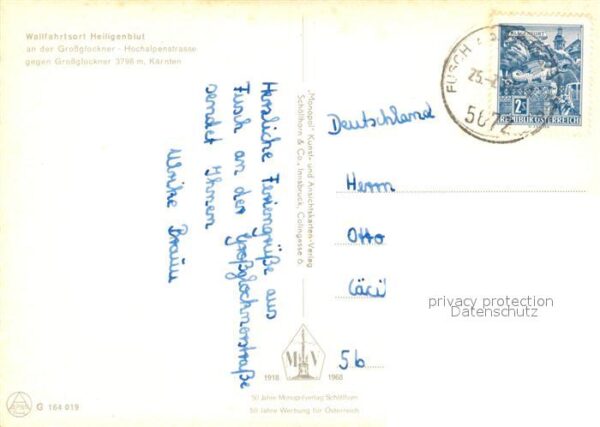 Wallfahrtsort Heiligenblut
an der Großglockner - Hochalpenstrasse
gegen Großglockner 3798 m, Kärnten
Herzliche Feriengrüße aus
Fusch an der Großglocknerstraße
sendet Ihnen
Ulrike Braun
„Monopol" Kunst- und Ansichtskarten-Verlag
Schöllhorn & Co., Innsbruck, Colingasse 6.
FUSCH A
25.
5672
2S
REPUBLIK ÖSTERREICH
Deutschland
Herrn
Otto
Cäci
5b
privacy protection
Datenschutz
M V
1918 1968
50 Jahre Monopolverlag Schöllhorn
50 Jahre Werbung für Österreich
G 164 019